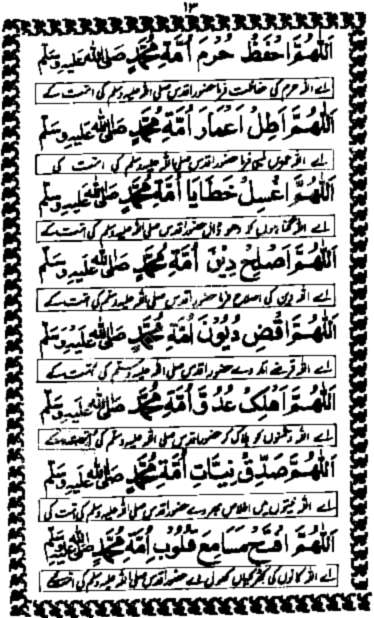 ۱۳
اَللّٰهُمَّ احْفَظْ حُرَمَ اُمَّةِ مُحَمَّدٍ صَلَّى اللّٰهُ عَلَيْهِ وَسَلَّمَ
اے اللہ حرم کی حفاظت فرما حضور اقدس صلی اللہ علیہ وسلم کی امت کے
اَللّٰهُمَّ اَطِلْ اَعْمَارَ اُمَّةِ مُحَمَّدٍ صَلَّى اللّٰهُ عَلَيْهِ وَسَلَّمَ
اے اللہ عمریں لمبی فرما حضور اقدس صلی اللہ علیہ وسلم کی امت کی
اَللّٰهُمَّ اغْسِلْ خَطَايَا اُمَّةِ مُحَمَّدٍ صَلَّى اللّٰهُ عَلَيْهِ وَسَلَّمَ
اے اللہ گناہوں کو دھو ڈال حضور اقدس صلی اللہ علیہ وسلم کی امت کے
اَللّٰهُمَّ اَصْلِحْ دِيْنَ اُمَّةِ مُحَمَّدٍ صَلَّى اللّٰهُ عَلَيْهِ وَسَلَّمَ
اے اللہ دین کی اصلاح فرما حضور اقدس صلی اللہ علیہ وسلم کی امت کے
اَللّٰهُمَّ اقْضِ دُيُوْنَ اُمَّةِ مُحَمَّدٍ صَلَّى اللّٰهُ عَلَيْهِ وَسَلَّمَ
اے اللہ قرضے اتار دے حضور اقدس صلی اللہ علیہ وسلم کی امت کے
اَللّٰهُمَّ اَهْلِكْ عُدُوَّ اُمَّةِ مُحَمَّدٍ صَلَّى اللّٰهُ عَلَيْهِ وَسَلَّمَ
اے اللہ دشمنوں کو ہلاک کر حضور اقدس صلی اللہ علیہ وسلم کی امت کے
اَللّٰهُمَّ صَدِّقْ نِيَّاتِ اُمَّةِ مُحَمَّدٍ صَلَّى اللّٰهُ عَلَيْهِ وَسَلَّمَ
اے اللہ نیتوں میں اخلاص بھر دے حضور اقدس صلی اللہ علیہ وسلم کی امت کی
اَللّٰهُمَّ افْتَحْ مَسَامِعَ قُلُوْبِ اُمَّةِ مُحَمَّدٍ صَلَّى اللّٰهُ عَلَيْهِ وَسَلَّمَ
اے اللہ کانوں کی کھڑکیاں کھول دے حضور اقدس صلی اللہ علیہ وسلم کی امت کے